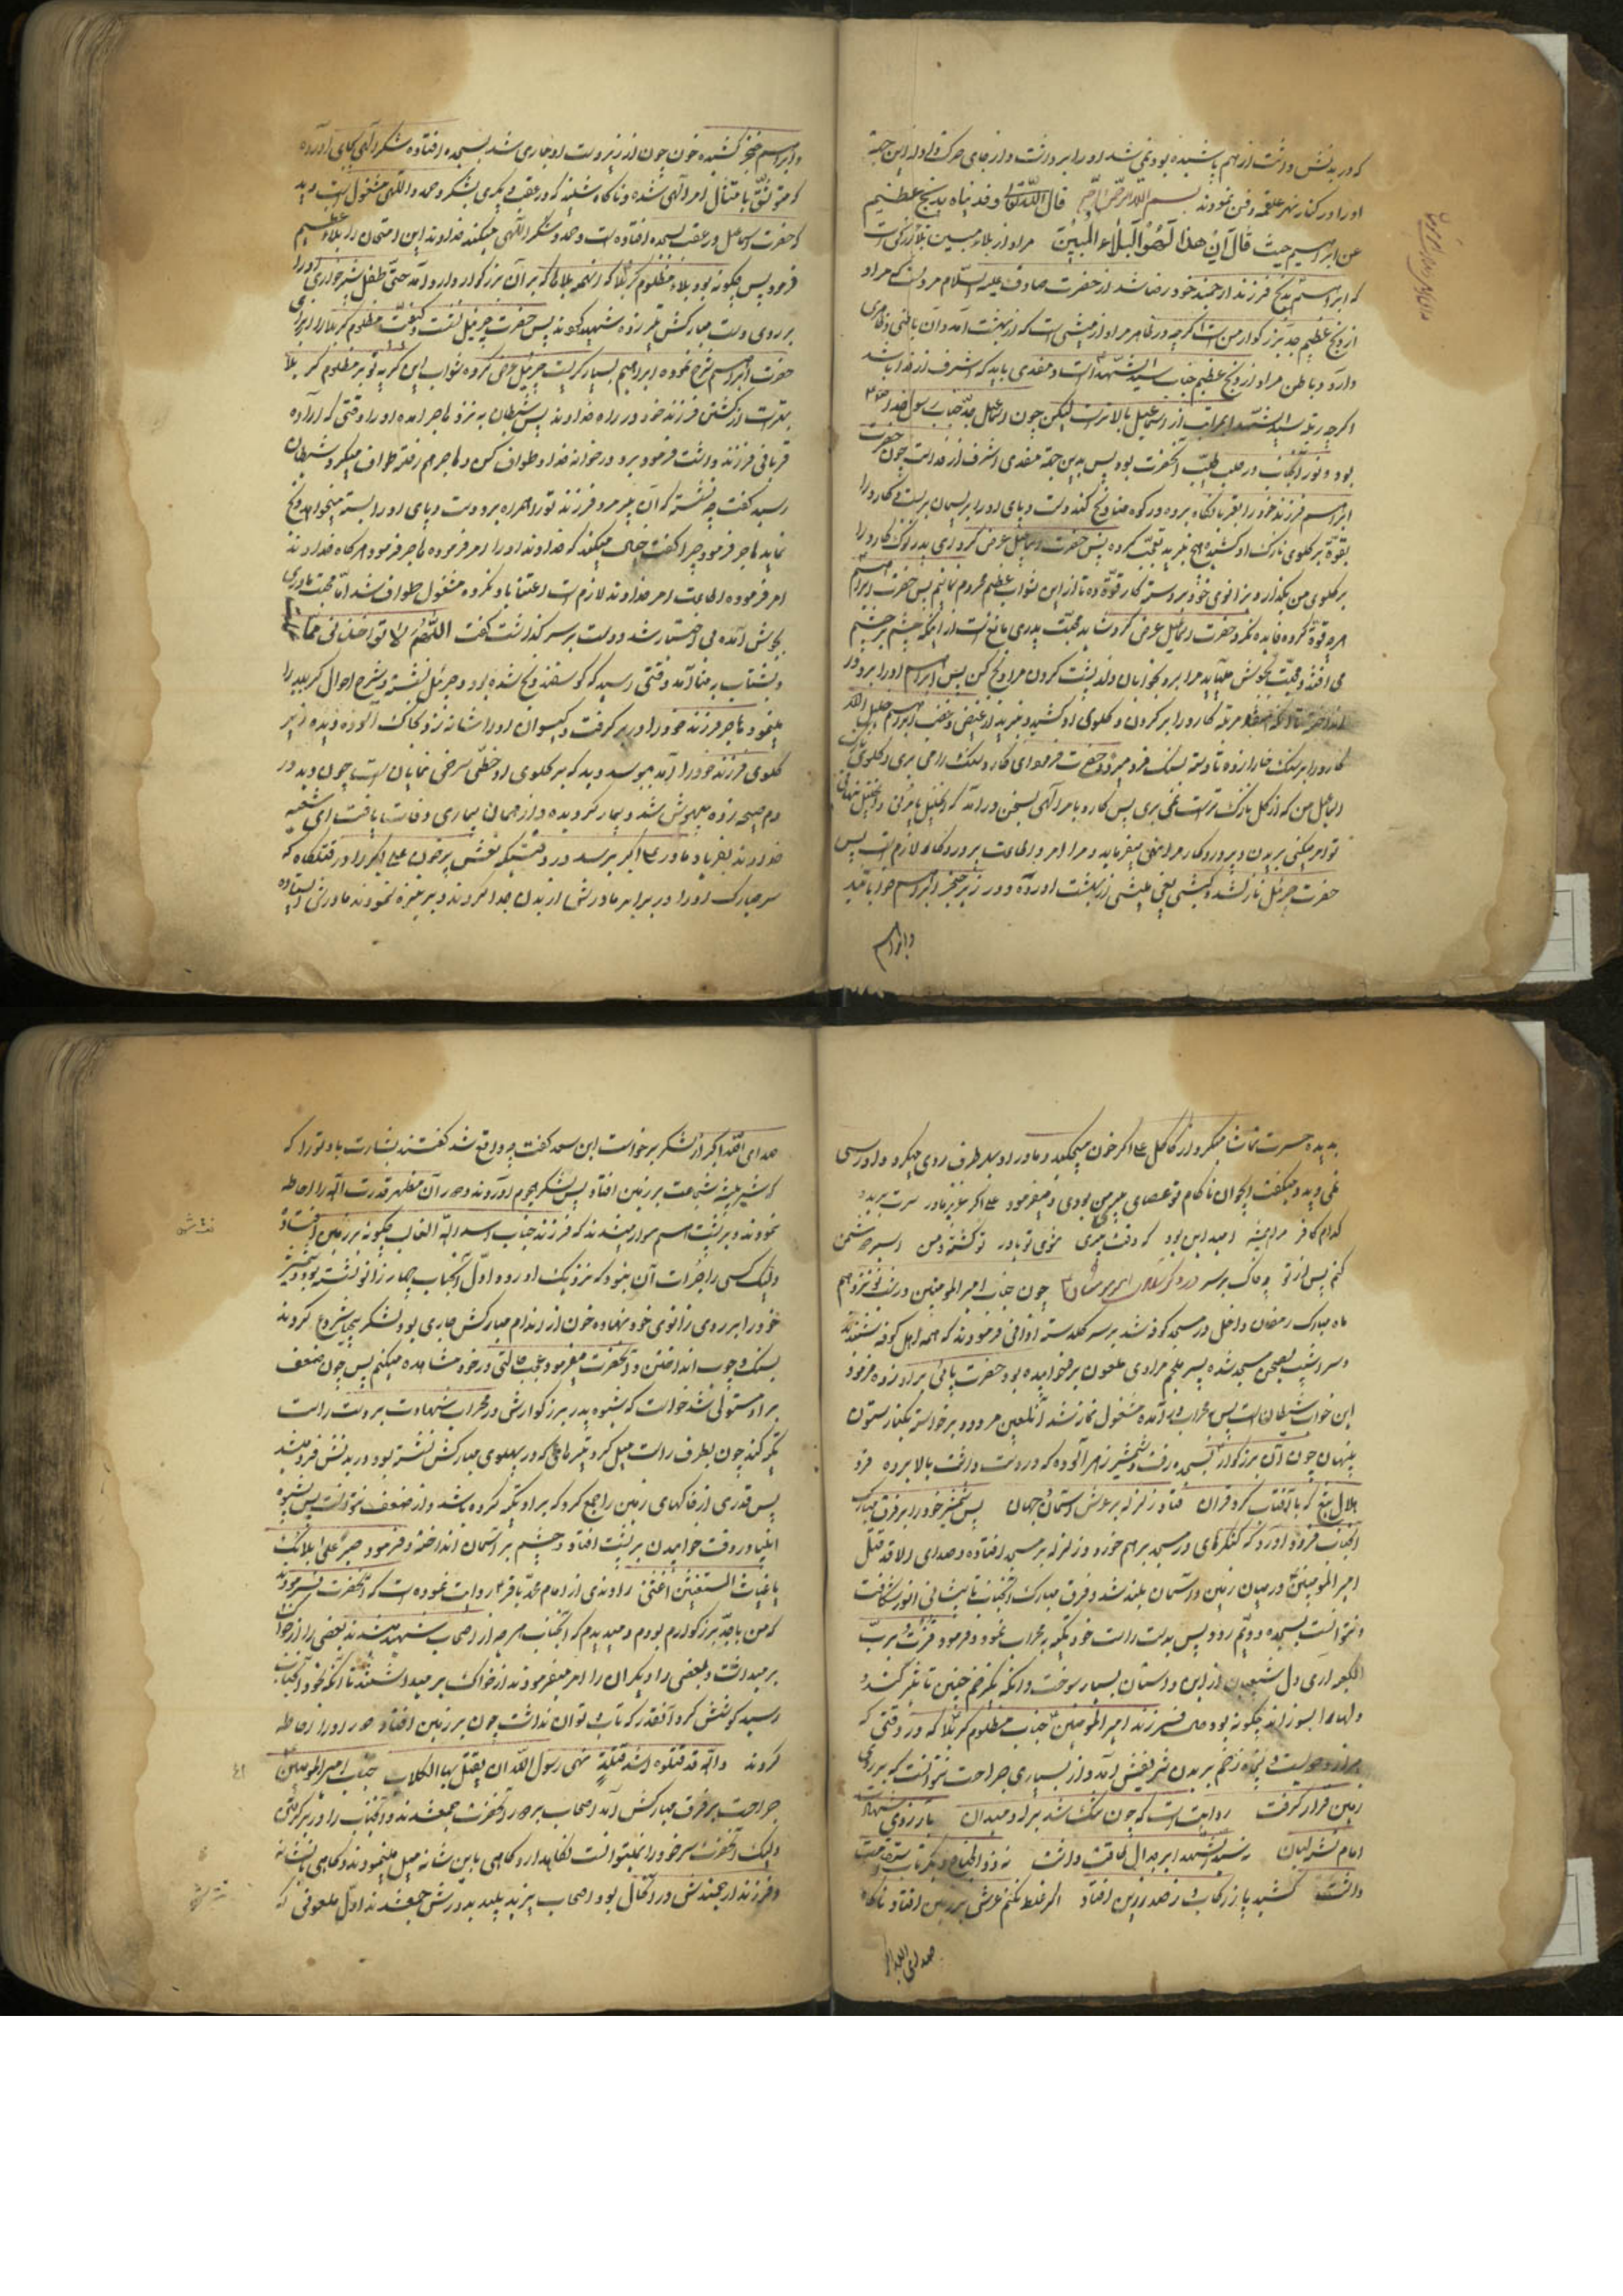 که در بدنش داشت از هم پاشیده بود نمی شد او را برداشت و از جای حرکت داد از این جهة
او را در کنار نهر علقمه دفن نمودند بسم الله الرحمن الرحیم قال الله تعالی و فدیناه بذبح عظیم
عن ابراهیم حیث قال ان هذا لهو البلاء المبین مراد از بلاء مبین بلاء بزرگی است
که ابراهیم بذبح فرزند ارجمند خود رضا شد از حضرت صادق علیه السلام مرویست که مراد
از ذبح عظیم جد بزرگوار من است اگرچه در ظاهر مراد از میشی است که از بهشت آمد و آن باطنی و ظاهری
دارد و باطن مراد از ذبح عظیم جناب سید الشهداء است و مفدی باید که اشرف از فدا باشد
اگرچه رتبه سید الشهداء بمراتب از اسماعیل بالاتر است لیکن چون اسماعیل جد جناب رسول خدا
بود و نور آنجناب در صلب طیب آنحضرت بود پس بدین جهة مفدی اشرف از فدا است چون حضرت
ابراهیم فرزند خود را بقربانگاه برده در کوه منا ذبح کند دست و پای او را بریسمان بست کارد را
بقوة بر گلوی نازک او کشید هیچ نبرید تعجب کرده پس حضرت اسماعیل عرض کرد ای پدر نوک کارد را
بر گلوی من بگذار و زانوی خود بر دسته کارد قوة ده تا از این ثواب عظیم محروم نمانیم پس حضرت ابراهیم
هر چه قوة کرده فایده نکرد حضرت اسماعیل عرض کرد شاید محبت پدری مانع است از اینکه چشم بر چشم
می افتد و محبت بجوش می آید مرا برو بخوابان و از پشت گردن مرا ذبح کن پس ابراهیم او را برو در
مرتبه کارد را بر گردن و گلوی او کشید و نبرید از غیض و غضب ابراهیم خلیل الله
کارد را بر سنگ خارا زده تا دسته بسنگ فرو میرود حضرت فرمود ای کارد سنگ را می بری و گلوی نازک
اسماعیل من که از گل نازک تر است نمی بری پس کارد بامر الهی بسخن درآمد که الخلیل یأمرنی و الجلیل ینهانی
تو امر میکنی ببریدن و پروردگار مرا نهی میفرماید و مرا امر و اطاعت پروردگار لازم است پس
حضرت جبرئیل نازل شد کبشی یعنی میشی از بهشت آورده و در زیر خنجر ابراهیم خوابانید
و ابراهیم
و ابراهیم خنجر کشیده خون چون از زیر دست او جاری شد بسجده افتاده شکر الهی بجای آورده
که موفق بامتثال امر الهی شده و ناگاه شنید که در عقب دیگری بشکر و حمد الهی مشغول است دید
که حضرت اسماعیل در عقب بسجده افتاده است و حمد و شکر الهی میکند خداوند این امتحان را بلاء عظیم
فرمود پس چگونه بود بلاء مظلوم کربلا که اینهمه بلاها که بر آن بزرگوار وارد آمد حتی طفل شیرخواره او را
بر روی دست مبارکش تیر زده شهید کردند پس حضرت جبرئیل گفت و کیفیت مظلوم کربلا را برای
حضرت ابراهیم شرح نموده ابراهیم بسیار گریست جبرئیل عرض کرده ثواب این گریه تو بر مظلوم کربلا
بهتر است از کشتن فرزند خود در راه خداوند پس شیطان به نزد هاجر آمده او را وقتی که اراده
قربانی فرزند داشت فرمود برو در خوانه خدا و طواف کن و هاجر هم رفته طواف میکرد شیطان
رسید گفت چه نشسته که آن پیر مرد فرزند تو را همراه برد و دست و پای او را بسته میخواهد ذبح
نماید هاجر فرمود چرا گفت خیال میکند که خداوند او را امر فرموده هاجر فرمود هر گاه خداوند
امر فرموده اطاعت امر خداوند لازم است اعتنا باو نکرده مشغول طواف شد اما محبت مادری
بجوش آمده بی اختیار شد و دست بر سر گذاشت گفت اللهم لا تؤاخذنی
و بشتاب به منا آمد وقتی رسید که گوسفند ذبح شده بود و جبرئیل نشسته شرح احوال کربلا را
مینمود هاجر فرزند خود را در بر گرفت و گیسوان او را شانه زد و بخاک آلوده دیده زیر
گلوی فرزند خود را آمد ببوسد دید که بر گلوی او خطی سرخی نمایان است چون دید در
دم صیحه زده بیهوش شد و بیمار گردیده و از همان بیماری وفات یافت ای شیعه
خداوند بفریاد مادر علی اکبر برسد در وقتیکه نعش پر خون علی اکبر را در قتلگاه که
سر مبارک او را در برابر مادرش از بدن جدا کردند و بر نیزه نمودند مادرش ایستاده
بدیده حسرت تماشا میکرد از کاکل علی اکبر خون میچکید و مادر او بهر طرف روی میکرد دادرسی
نمی دید و میگفت ایجوان ناکام تو عصای پیری من بودی و میفرمود علی اکبر عزیز مادر سرت برید
کدام کافر مرا همیشه امید این بود که وقت پیری شوی تو یاور تو کشته و من اسیر دشمن
کنم پس از تو چه خاک بر سر چون جناب امیر المومنین در شب نوزدهم
ماه مبارک رمضان داخل در مسجد کوفه شد بر سر گلدسته اذانی فرمودند که همه اهل کوفه شنیدند
و سراشیب بصحن مسجد شده پسر ملجم مرادی ملعون بر رو خوابیده بود حضرت پائی بر او زده فرمود
این خواب شیطان است پس بمحراب در آمده مشغول نماز شد آنلعین مردود برخواسته بکنار ستون
پنهان چون آن بزرگوار بسجده رفت شمشیر زهر آلوده که در دست داشت بالا برده فرو
هلال تیغ که با آفتاب کرد قران فتاد زلزله بر عرش و آسمان و جهان پس شمشیر خود را بر فرق مبارک
آنجناب فرود آورد که کنگرهای در مسجد بر هم خورد و زلزله بر مسجد افتاده و صدای الا قد قتل
امیر المومنین در میان زمین و آسمان بلند شد و فرق مبارک آنجناب تا پیشانی انور شکافت
و نتوانست بسجده دویم رود پس بدست راست خود تکیه به محراب نمود و فرمود فزت و رب
الکعبه آری دل شیعیان از این داستان بسیار سوخت و آنکه یکزخم چنین تأثیر کند و
دلها را بسوزاند چگونه بود حال فرزند امیر المومنین جناب مظلوم کربلا که در وقتی که
هزار و نهصد و پنجاه زخم بر بدن شریفش آمد و از بسیاری جراحت نتوانست که بر روی
زمین قرار گرفت روایت است که چون تنگ شد بر او میدان بارزوی شهادت
امام تشنه لبان نه سید الشهدا بر جدال طاقت داشت نه ذوالجناح دیگر تاب استقامت
داشت کشید پا ز رکاب و ز صدر زین افتاد اگر غلط نکنم عرش بر زمین افتاد ناگاه
صدای الله اکبر
صدای الله اکبر از لشکر برخواست ابن سعد گفت چه واقع شد گفتند بشارت باد تو را که
که شیر بیشه شجاعت بر زمین افتاد پس لشکر هجوم آوردند و دور آن مظهر قدرت اله را احاطه
نمودند و بر پشت اسب سوار میشدند که فرزند جناب اسد الله الغالب چگونه بر زمین افتاده
ولیک کسی را جرأت آن نبود که نزدیک او رود و اول آنجناب چهار زانو نشسته بود و شمشیر
خود را بر روی زانوی خود نهاده خون از اندام مبارکش جاری بود لشکر بیحیا شروع کردند
بسنگ و چوب انداختن و آنحضرت میفرمود عجب حالتی در خود مشاهده میکنم پس چون ضعف
بر او مستولی شد خواست که بشیوه پدر بزرگوارش در محراب شهادت بر دست راست
تکیه کند چون بطرف راست میل کرد تیرهائی که در پهلوی مبارکش نشسته بود در بدنش فرو میشد
پس قدری از خاکهای زمین را جمع کرد که بر او تکیه کرده باشد و از ضعف نتوانست پس بشیوه
انبیا در وقت خوابیدن بر پشت افتاد و چشم بر آسمان انداخته و فرمود صبرا علی بلائک
یا غیاث المستغیثین اغثنی راوندی از امام محمد باقر روایت نموده است که آنحضرت میفرمودند
که من با جد بزرگوارم بودم و میدیدم که آنجناب هر چه از اصحاب شهید میشدند بعضی را از خاک
بر میداشت و بعضی را دیگران را امر میفرمودند از خاک بر میداشتند تا آنکه خود آنجناب
رسید کوشش کرد آنقدر که تاب و توان نداشت چون بر زمین افتاد دور او را احاطه
کردند والله قد قتلوه اشد قتلة نهی رسول الله ان یقتل بها الکلاب جناب امیر المومنین
جراحت بر فرق مبارکش آمد اصحاب بر دور آنحضرت جمع شدند و آنجناب را در بر گرفتن
ولیک آنحضرت سر خود را نمیتوانست نگاهدارد و گاهی باین شانه میل مینمودند و گاهی باین شانه
و فرزند ارجمندش در آنحال بود اصحاب یزید پلید به دورش جمع شدند اول ملعونی که